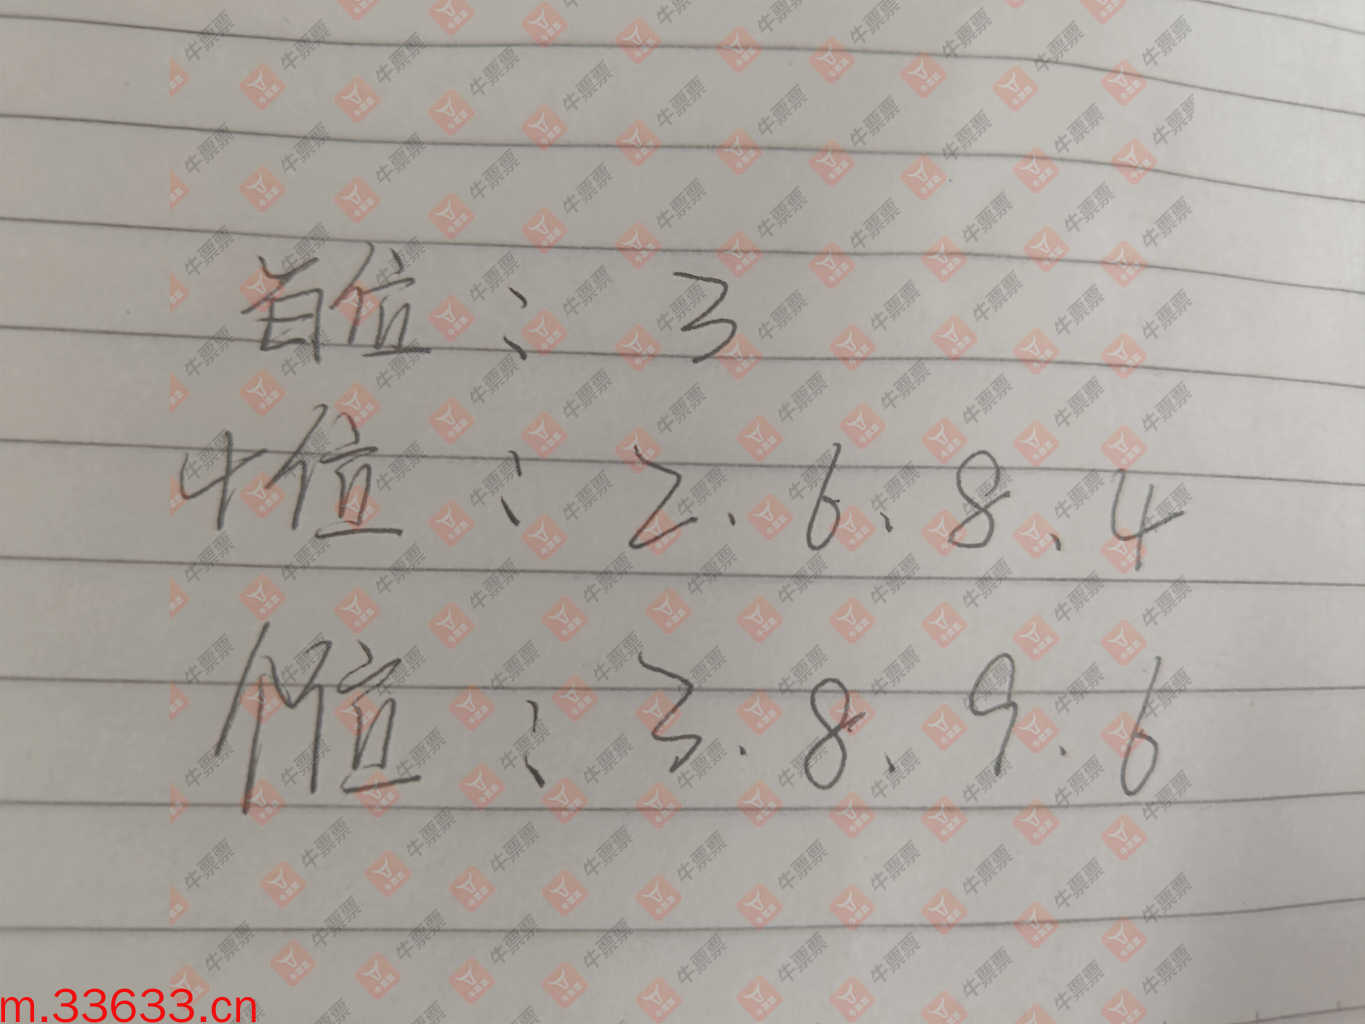 首位：3
十位：2、6、8、4
个位：3、8、9、6
牛票票
m.33633.cn